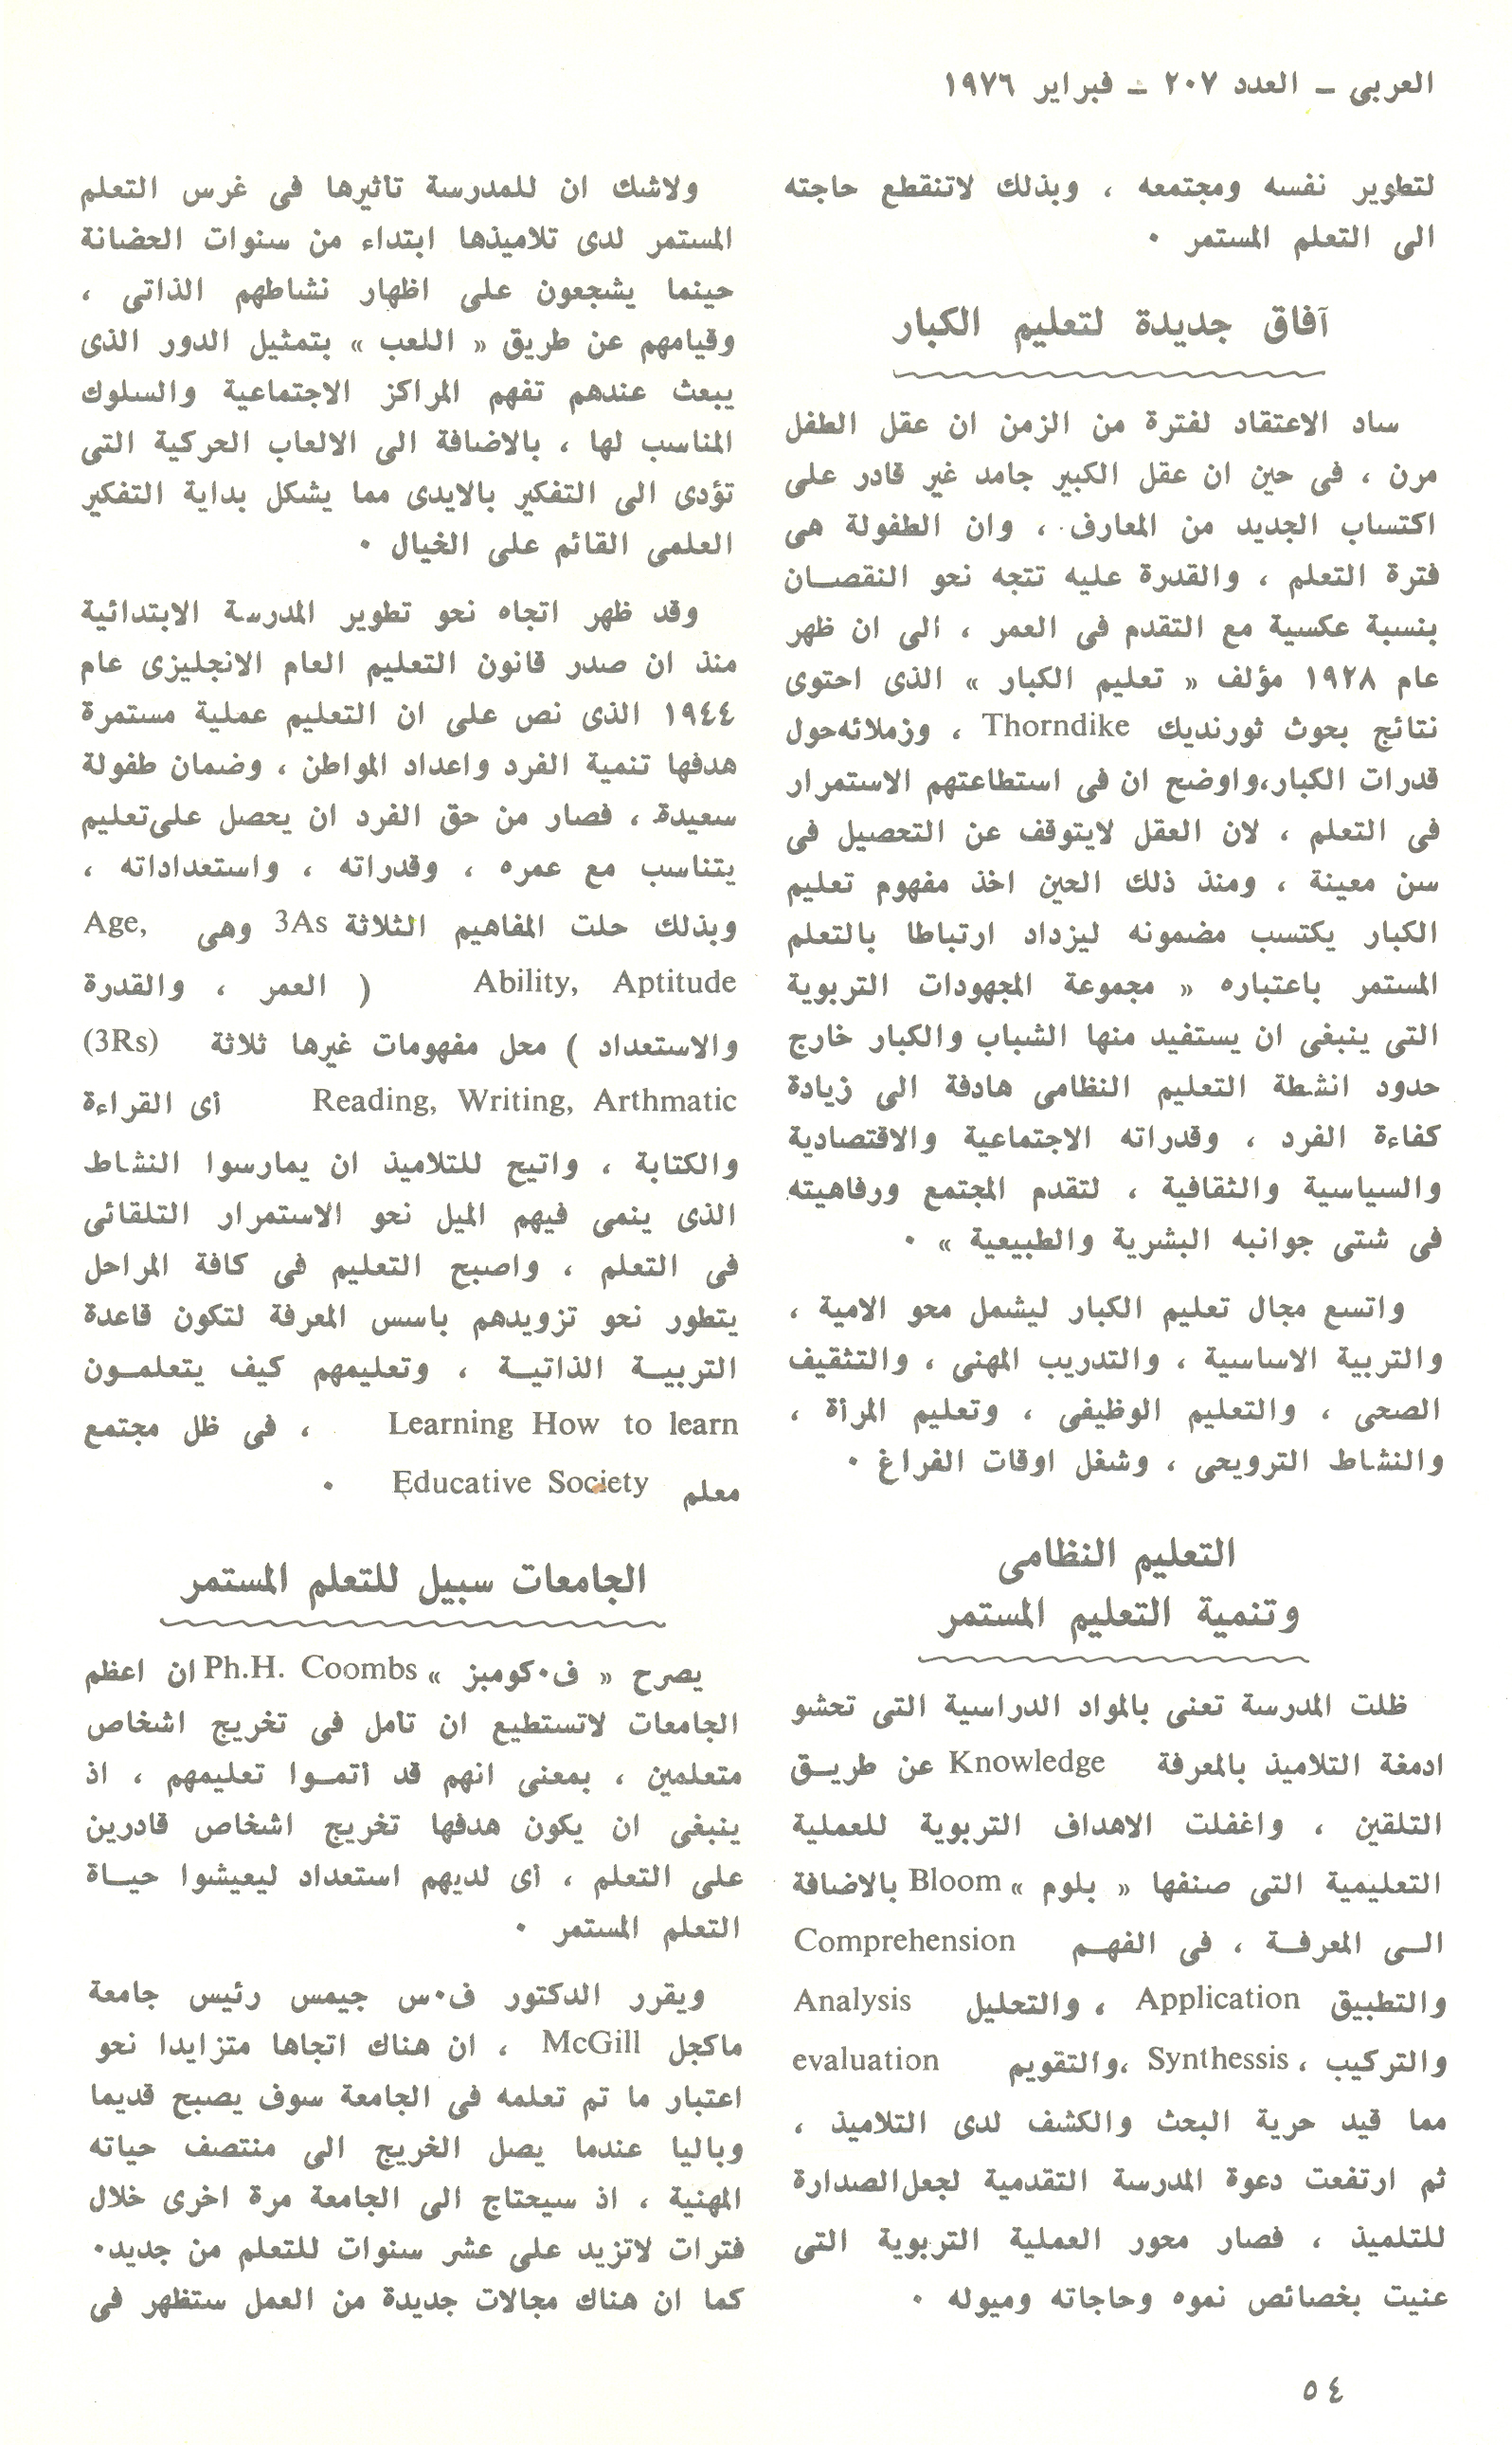 العربى ـ العدد ٢٠٧ ـ فبراير ١٩٧٦
لتطوير نفسه ومجتمعه ، وبذلك لاتنقطع حاجته
الى التعلم المستمر ٠
آفاق جديدة لتعليم الكبار
ساد الاعتقاد لفترة من الزمن ان عقل الطفل
مرن ، فى حين ان عقل الكبير جامد غير قادر على
اكتساب الجديد من المعارف ، وان الطفولة هى
فترة التعلم ، والقدرة عليه تتجه نحو النقصــان
بنسبة عكسية مع التقدم فى العمر ، الى ان ظهر
عام ١٩٢٨ مؤلف « تعليم الكبار » الذى احتوى
نتائج بحوث ثورنديك Thorndike ، وزملائه حول
قدرات الكبار،واوضح ان فى استطاعتهم الاستمرار
فى التعلم ، لان العقل لايتوقف عن التحصيل فى
سن معينة ، ومنذ ذلك الحين اخذ مفهوم تعليم
الكبار يكتسب مضمونه ليزداد ارتباطا بالتعلم
المستمر باعتباره « مجموعة المجهودات التربوية
التى ينبغى ان يستفيد منها الشباب والكبار خارج
حدود انشطة التعليم النظامى هادفة الى زيادة
كفاءة الفرد ، وقدراته الاجتماعية والاقتصادية
والسياسية والثقافية ، لتقدم المجتمع ورفاهيته
فى شتى جوانبه البشرية والطبيعية » ٠
واتسع مجال تعليم الكبار ليشمل محو الامية ،
والتربية الاساسية ، والتدريب المهنى ، والتثقيف
الصحى ، والتعليم الوظيفى ، وتعليم المرأة ،
والنشاط الترويحى ، وشغل اوقات الفراغ ٠
التعليم النظامى
وتنمية التعليم المستمر
ظلت المدرسة تعنى بالمواد الدراسية التى تحشو
ادمغة التلاميذ بالمعرفة Knowledge عن طريــق
التلقين ، واغفلت الاهداف التربوية للعملية
التعليمية التى صنفها « بلوم » Bloom بالاضافة
الــى المعرفــة ، فى الفهــم Comprehension
والتطبيق Application ، والتحليل Analysis
والتركيب ، Synthessis ،والتقويم evaluation
مما قيد حرية البحث والكشف لدى التلاميذ ،
ثم ارتفعت دعوة المدرسة التقدمية لجعل الصدارة
للتلميذ ، فصار محور العملية التربوية التى
عنيت بخصائص نموه وحاجاته وميوله ٠
ولاشك ان للمدرسة تأثيرها فى غرس التعلم
المستمر لدى تلاميذها ابتداء من سنوات الحضانة
حينما يشجعون على اظهار نشاطهم الذاتى ،
وقيامهم عن طريق « اللعب » بتمثيل الدور الذى
يبعث عندهم تفهم المراكز الاجتماعية والسلوك
المناسب لها ، بالاضافة الى الالعاب الحركية التى
تؤدى الى التفكير بالايدى مما يشكل بداية التفكير
العلمى القائم على الخيال ٠
وقد ظهر اتجاه نحو تطوير المدرسة الابتدائية
منذ ان صدر قانون التعليم العام الانجليزى عام
١٩٤٤ الذى نص على ان التعليم عملية مستمرة
هدفها تنمية الفرد واعداد المواطن ، وضمان طفولة
سعيدة ، فصار من حق الفرد ان يحصل على تعليم
يتناسب مع عمره ، وقدراته ، واستعداداته ،
وبذلك حلت المفاهيم الثلاثة 3As وهى Age,
Ability, Aptitude ( العمر ، والقدرة
والاستعداد ) محل مفهومات غيرها ثلاثة (3Rs)
Reading, Writing, Arthmatic أى القراءة
والكتابة ، واتيح للتلاميذ ان يمارسوا النشاط
الذى ينمى فيهم الميل نحو الاستمرار التلقائى
فى التعلم ، واصبح التعليم فى كافة المراحل
يتطور نحو تزويدهم باسس المعرفة لتكون قاعدة
التربيــة الذاتيــة ، وتعليمهم كيف يتعلمــون
Learning How to learn ، فى ظل مجتمع
معلم Educative Society ٠
الجامعات سبيل للتعلم المستمر
يصرح « ف٠كومبز » Ph.H. Coombs ان اعظم
الجامعات لاتستطيع ان تأمل فى تخريج اشخاص
متعلمين ، بمعنى انهم قد أتمــوا تعليمهم ، اذ
ينبغى ان يكون هدفها تخريج اشخاص قادرين
على التعلم ، أى لديهم استعداد ليعيشوا حيــاة
التعلم المستمر ٠
ويقرر الدكتور ف٠س جيمس رئيس جامعة
ماكجل McGill ، ان هناك اتجاها متزايدا نحو
اعتبار ما تم تعلمه فى الجامعة سوف يصبح قديما
وباليا عندما يصل الخريج الى منتصف حياته
المهنية ، اذ سيحتاج الى الجامعة مرة اخرى خلال
فترات لاتزيد على عشر سنوات للتعلم من جديد٠
كما ان هناك مجالات جديدة من العمل ستظهر فى
٥٤